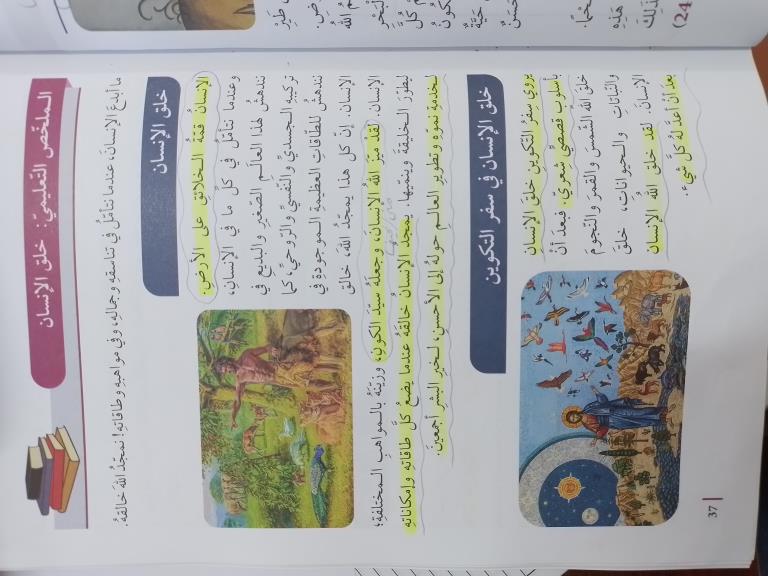 الملخّص التعليميّ: خلق الإنسان
ما أبدعَ الإنسان، عندما نتأمّلُ في تناسقه وجماله، وفي مواهبه وطاقاته! نمجّدُ اللهَ خالقهُ.
خلق الإنسان
الإنسانُ قمّةُ الخلائقِ على الأرضِ.
وعندما نتأمّلُ في كلّ ما في الإنسان،
نندهشُ لهذا العالمِ الصّغيرِ والبديعِ في
تركيبه الجسديِّ والنّفسيِّ والرّوحيِّ، كما
نندهشُ للطّاقاتِ العظيمةِ الموجودةِ في
الإنسان. إنّ كلّ هذا يمجّدُ الله، خالق
الإنسان. لقد ميّزَ اللهُ الإنسانَ، وجعلَهُ سيّدَ الكونِ، وزيّنَهُ بالمواهبِ المختلفةِ؛
ليطوّرَ الخليقةَ وينميَها. يمجّدُ الإنسانُ خالقَهُ عندما يضعُ كلَّ طاقاته وإمكاناته
لخدمةِ نموّه وتطويرِ العالمِ حولَهُ إلى الأحسنِ، لخيرِ البشرِ أجمعين.
خلق الإنسان في سفر التكوين
يروي سِفرُ التكوين خلقَ الإنسان
بأسلوبٍ قصصيٍّ شعريّ. فبعدَ أنْ
خلقَ اللهُ الشّمسَ والقمرَ والنّجومَ
والنّباتاتِ والحيواناتِ، خلقَ
الإنسان. لقد خلقَ اللهُ الإنسان
بعدَ أنْ أعدَّ لهُ كلَّ شيء.
37